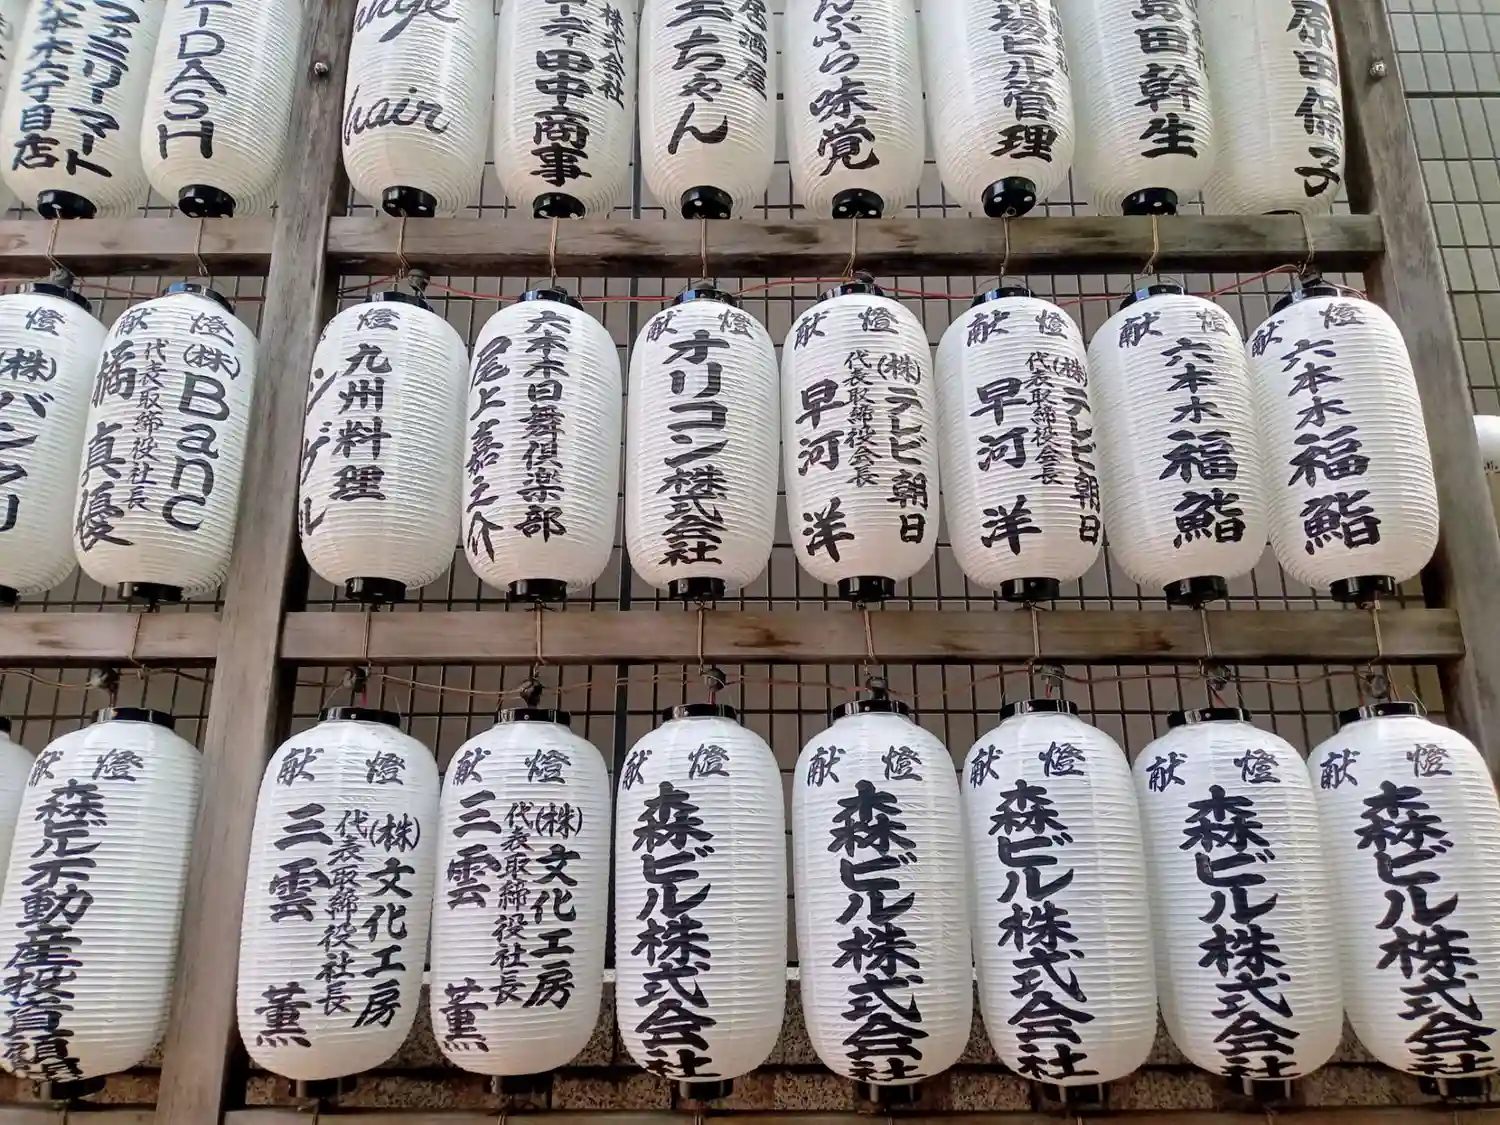 ファミリーマート
六本木六丁目店
DASH
hair
株式会社
田中商事
居酒屋
ちゃん
んぷら味覚
場ビル管理
島田幹生
原田保子
燈
(株)
献燈
(株)Banc
代表取締役社長
橘真優
燈
九州料理
献燈
六本木日舞倶楽部
尾上嘉之介
献燈
オリコン株式会社
献燈
(株)テレビ朝日
代表取締役会長
早河洋
献燈
(株)テレビ朝日
代表取締役会長
早河洋
献燈
六本木
福鮨
献燈
六本木
福鮨
献燈
森ビル不動産投資顧問
献燈
(株)文化工房
代表取締役社長
三雲薫
献燈
(株)文化工房
代表取締役社長
三雲薫
献燈
森ビル株式会社
献燈
森ビル株式会社
献燈
森ビル株式会社
献燈
森ビル株式会社
献燈
森ビル株式会社